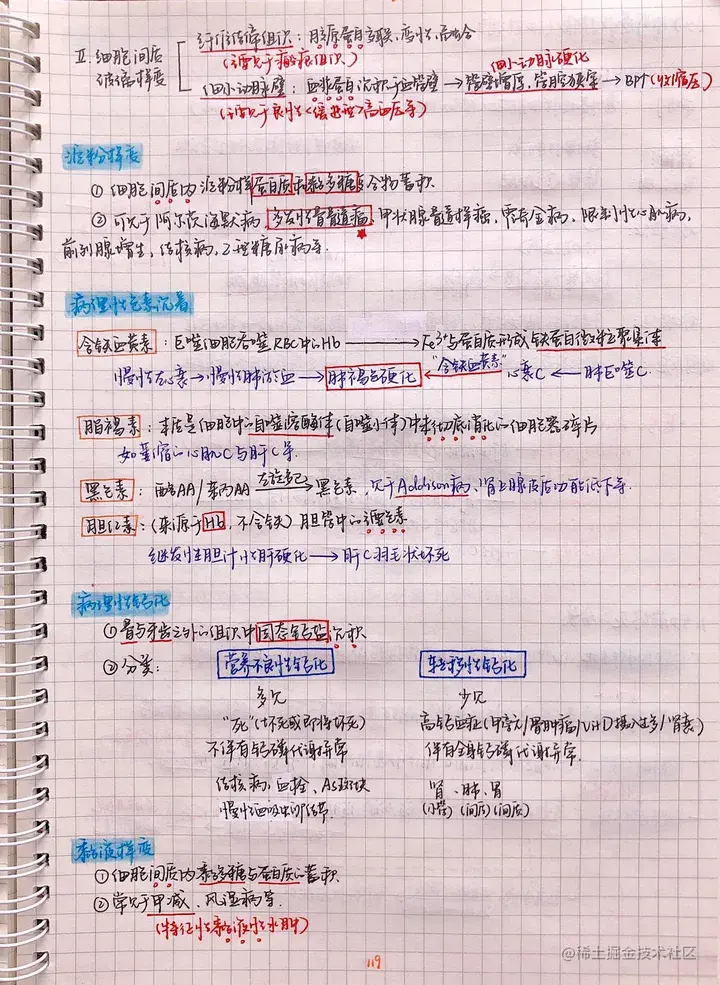 Ⅱ. 细胞间质 纤维结缔组织：胶原蛋白交联、变性、融合
玻璃样变 (通常见于瘢痕组织)
细小动脉硬化
细小动脉壁：血浆蛋白沉积于血管壁→管壁增厚，管腔狭窄→BP↑
(通常见于良性<缓进型>高血压等)
淀粉样变
① 细胞间质内淀粉样蛋白质和黏多糖复合物蓄积.
② 可见于阿尔茨海默病，多发性骨髓瘤，甲状腺髓样癌，霍奇金病，限制性心肌病，
前列腺增生，结核病，2型糖尿病等.
病理性色素沉着
含铁血黄素：巨噬细胞吞噬RBC中的Hb→Fe3+与蛋白质形成铁蛋白微粒聚集体
"含铁血黄素"
慢性左心衰→慢性肺淤血→肺褐色硬化← 心衰C ←肺巨噬C.
脂褐素：本质是细胞中的自噬溶酶体(自噬小体)中未彻底消化的细胞器碎片
如萎缩的心肌C与肝C等.
黑色素：酪AA/ →黑色素，见于Addison病，肾上腺皮质功能低下等.
胆红素：(来源于Hb，不含铁)胆管中的 色素
继发性胆汁性肝硬化→肝C羽毛状坏死
病理性钙化
① 骨与牙齿之外的组织中固态钙盐沉积
② 分类： 营养不良性钙化 转移性钙化
多见 少见
"死"(坏死或即将坏死) 高钙血症(甲亢/骨肿瘤/VitD摄入过多/肾衰)
不伴有钙磷代谢异常 伴有全身钙磷代谢异常.
结核病，血栓，AS斑块 肾、肺、胃
慢性血吸虫卵结节. (小管) (间质) (间质)
黏液样变
① 细胞间质内黏多糖与蛋白质的蓄积.
② 常见于甲减、风湿病等.
(特征性黏液性水肿)
119
@稀土掘金技术社区